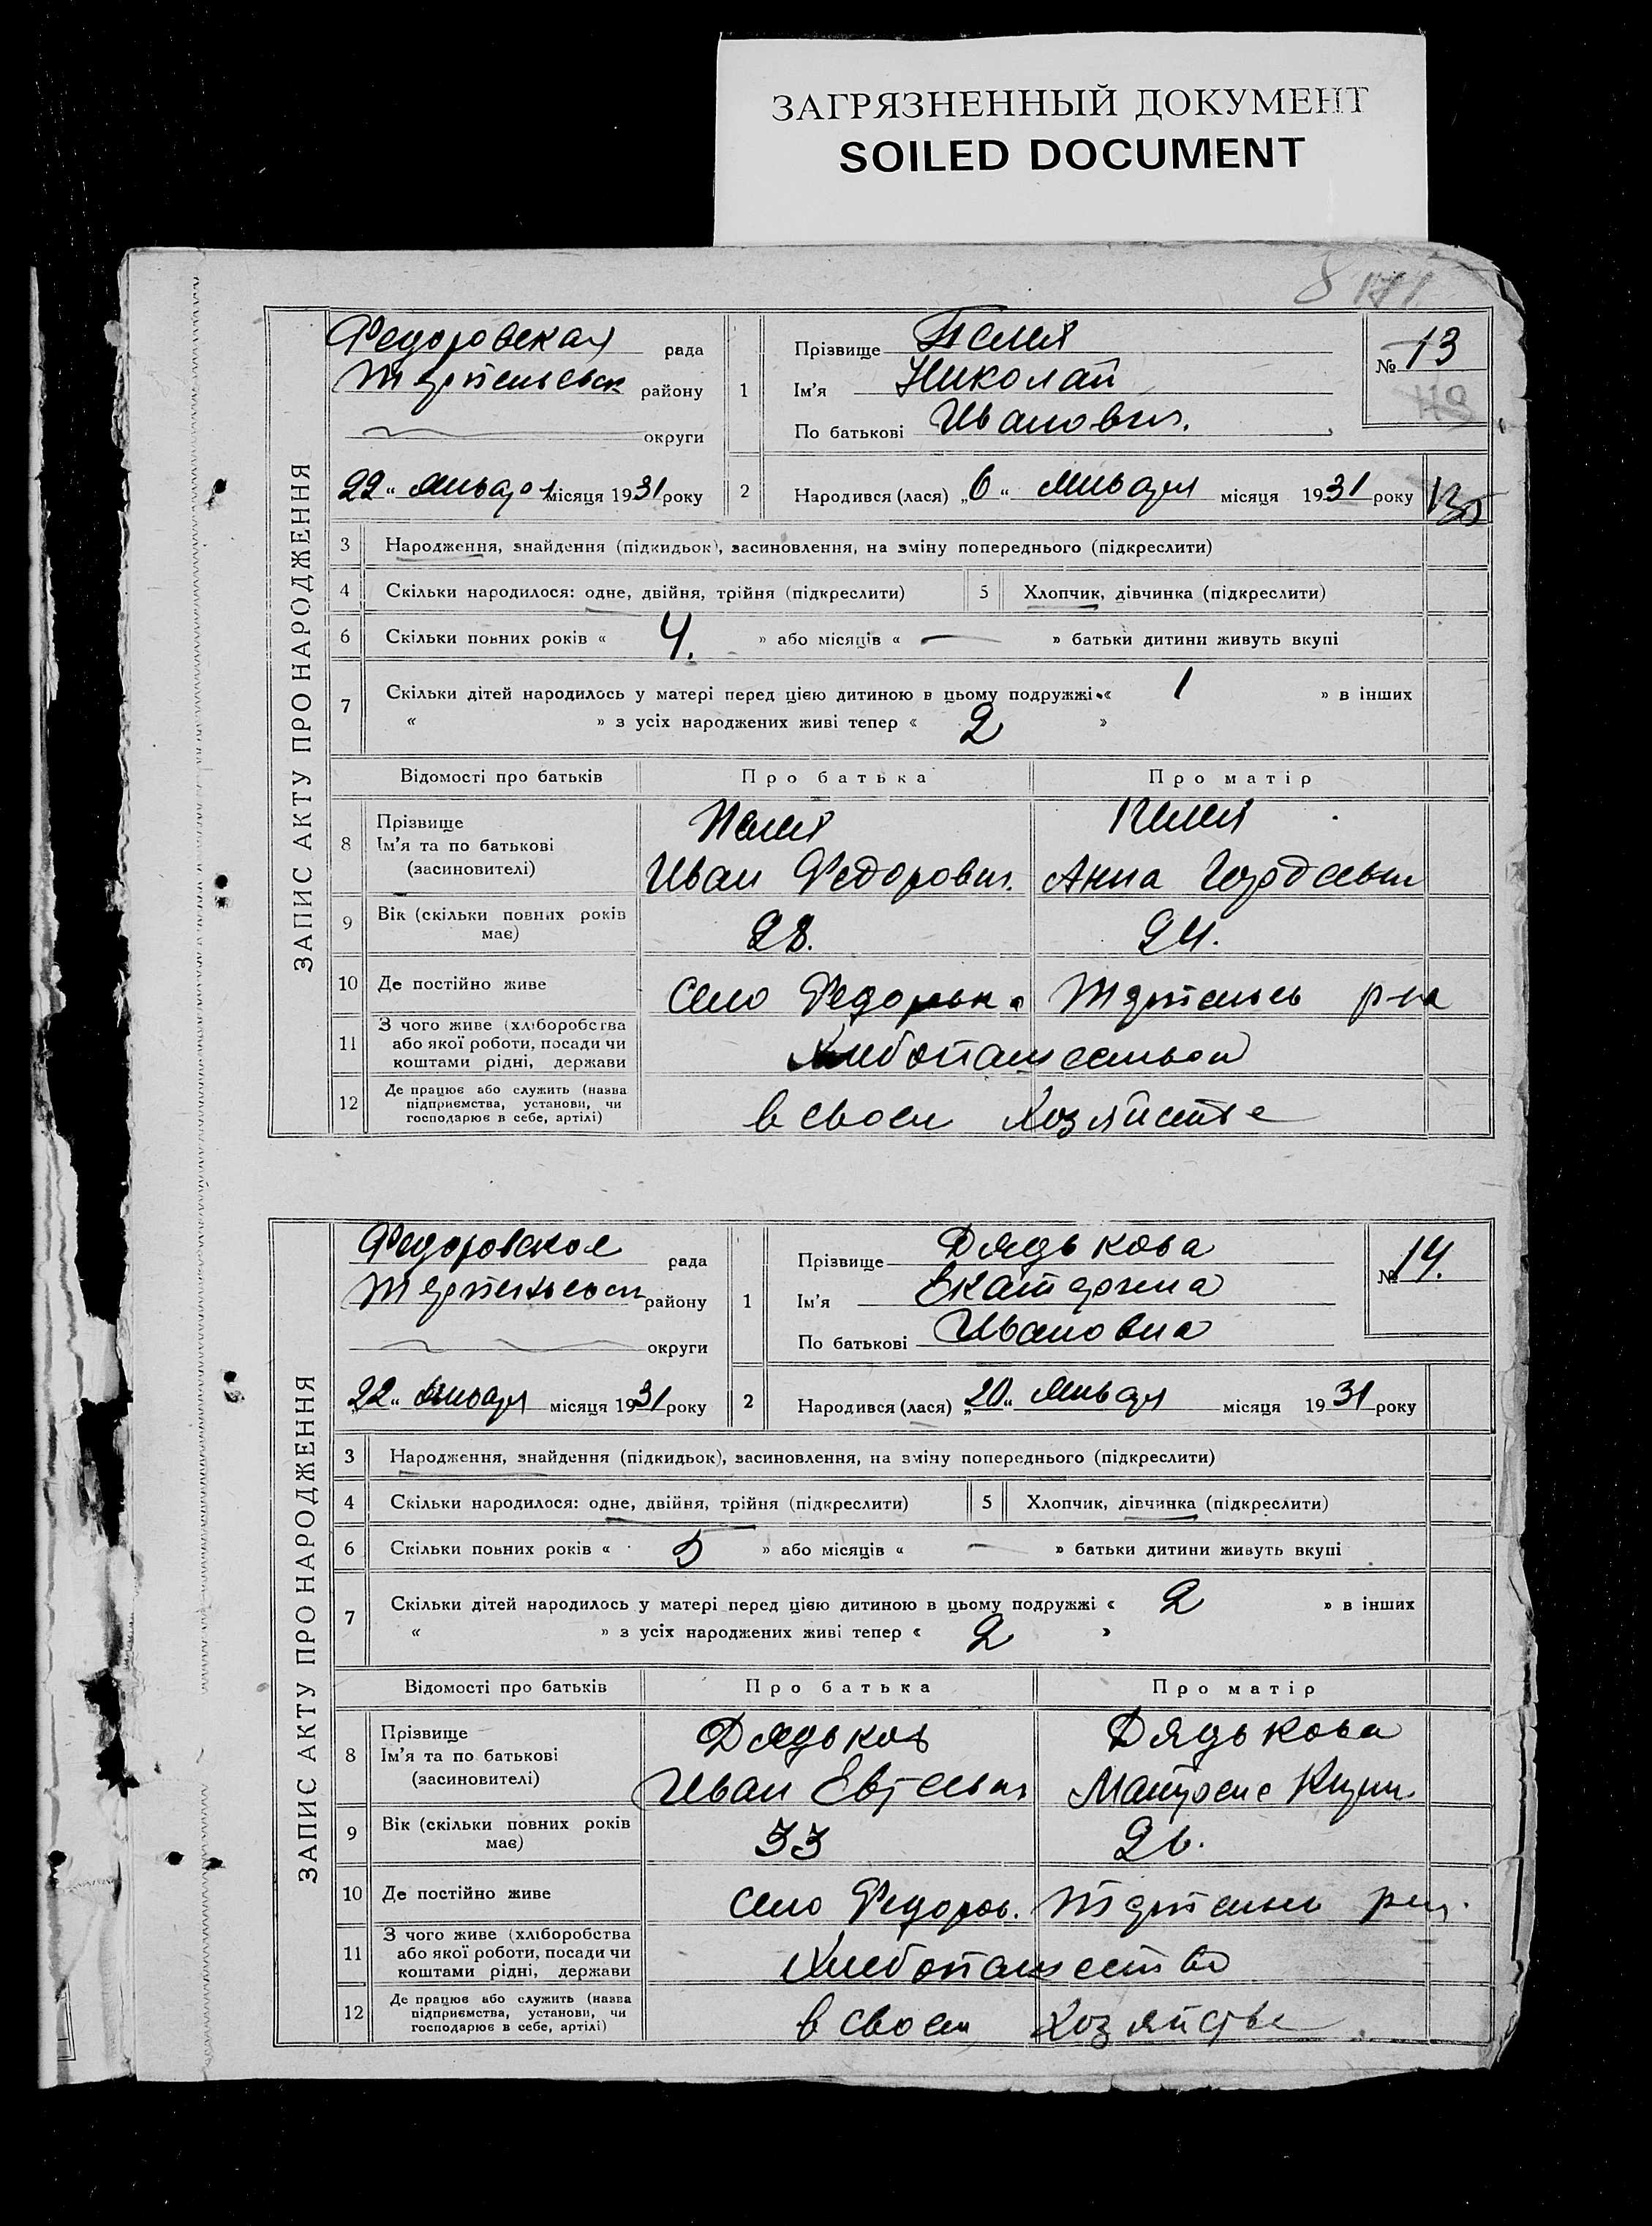 ЗАГРЯЗНЕННЫЙ ДОКУМЕНТ
SOILED DOCUMENT
ЗАПИС АКТУ ПРО НАРОДЖЕННЯ
Федоровская рада
району
округи
22 “ Января місяця 1931 року
1
Прізвище
Ім’я Николай
По батькові Иванович.
№ 13
2
Народився (лася) „6 “ Января місяця 1931 року
3 Народження, знайдення (підкидьок), засиновлення, на зміну попереднього (підкреслити)
4 Скільки народилося: одне, двійня, трійня (підкреслити) 5 Хлопчик, дівчинка (підкреслити)
6 Скільки повних років « 4. » або місяців « — » батьки дитини живуть вкупі
7 Скільки дітей народилось у матері перед цією дитиною в цьому подружжі « 1 » в інших
« » з усіх народжених живі тепер « 2 »
Відомості про батьків Про батька Про матір
8 Прізвище
Ім’я та по батькові
(засиновителі)
Иван Федорович. Анна
9 Вік (скільки повних років має) 28. 24.
10 Де постійно живе Село р-на
11 З чого живе (хліборобства
або якої роботи, посади чи
коштами рідні, держави
12 Де працює або служить (назва
підприємства, установи, чи
господарює в себе, артілі)
в своем хозяйстве
ЗАПИС АКТУ ПРО НАРОДЖЕННЯ
рада
району
округи
„22 “ Января місяця 1931 року
1
Прізвище Дядькова
Ім’я Екатерина
По батькові Ивановна
№ 14.
2
Народився (лася) „20 “ Января місяця 1931 року
3 Народження, знайдення (підкидьок), засиновлення, на зміну попереднього (підкреслити)
4 Скільки народилося: одне, двійня, трійня (підкреслити) 5 Хлопчик, дівчинка (підкреслити)
6 Скільки повних років « 5 » або місяців « — » батьки дитини живуть вкупі
7 Скільки дітей народилось у матері перед цією дитиною в цьому подружжі « 2 » в інших
« » з усіх народжених живі тепер « 2 »
Відомості про батьків Про батька Про матір
8 Прізвище
Ім’я та по батькові
(засиновителі)
Дядьков Дядькова
Иван
9 Вік (скільки повних років має) 33 26.
10 Де постійно живе Село Федоров.
11 З чого живе (хліборобства
або якої роботи, посади чи
коштами рідні, держави
Хлебопашество
12 Де працює або служить (назва
підприємства, установи, чи
господарює в себе, артілі)
в своем хозяйстве